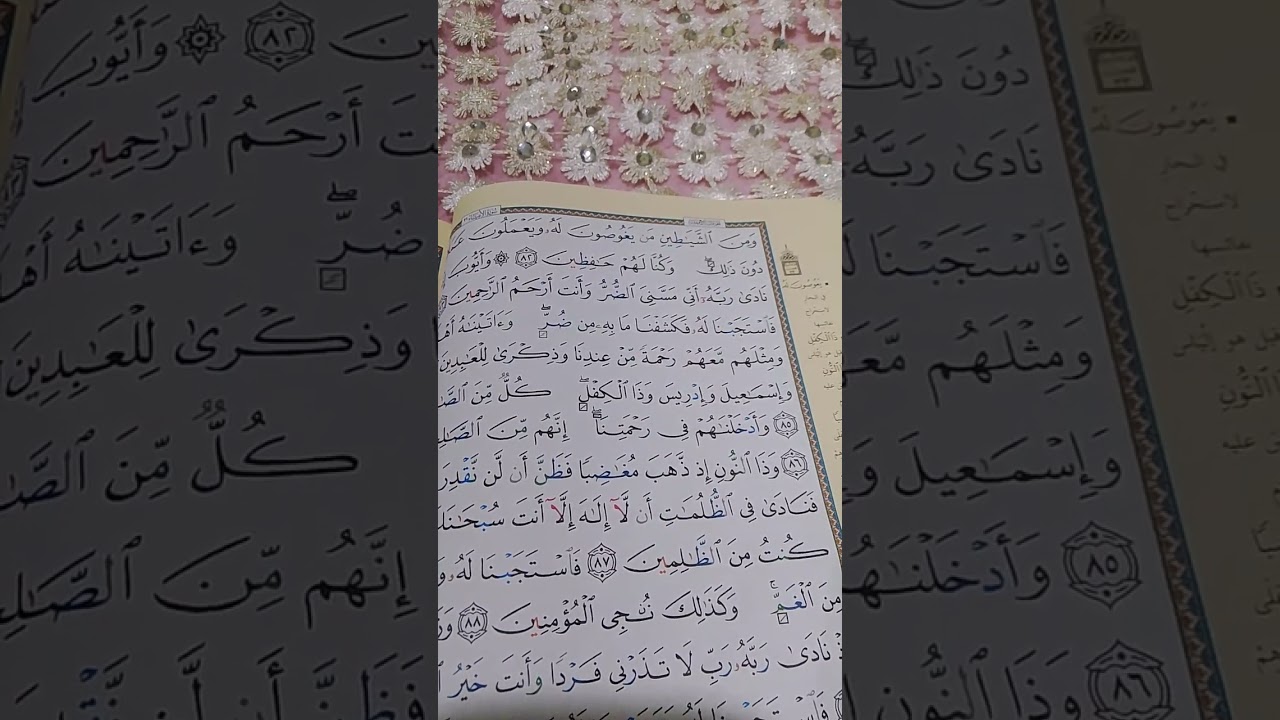 وَمِنَ ٱلشَّيَٰطِينِ مَن يَغُوصُونَ لَهُۥ وَيَعْمَلُونَ
دُونَ ذَٰلِكَۖ وَكُنَّا لَهُمْ حَٰفِظِينَ ٨٢ ۞ وَأَيُّوبَ
نَادَىٰ رَبَّهُۥٓ أَنِّى مَسَّنِىَ ٱلضُّرُّ وَأَنتَ أَرْحَمُ ٱلرَّٰحِمِينَ
فَٱسْتَجَبْنَا لَهُۥ فَكَشَفْنَا مَا بِهِۦ مِن ضُرٍّۖ وَءَاتَيْنَٰهُ أَهْ
وَمِثْلَهُم مَّعَهُمْ رَحْمَةً مِّنْ عِندِنَا وَذِكْرَىٰ لِلْعَٰبِدِينَ
وَإِسْمَٰعِيلَ وَإِدْرِيسَ وَذَا ٱلْكِفْلِۖ كُلٌّ مِّنَ ٱلصَّٰ
٨٥ وَأَدْخَلْنَٰهُمْ فِى رَحْمَتِنَآۖ إِنَّهُم مِّنَ ٱلصَّٰلِ
٨٦ وَذَا ٱلنُّونِ إِذ ذَّهَبَ مُغَٰضِبًا فَظَنَّ أَن لَّن نَّقْدِرَ
فَنَادَىٰ فِى ٱلظُّلُمَٰتِ أَن لَّآ إِلَٰهَ إِلَّآ أَنتَ سُبْحَٰنَكَ
كُنتُ مِنَ ٱلظَّٰلِمِينَ ٨٧ فَٱسْتَجَبْنَا لَهُۥ وَ
مِنَ ٱلْغَمِّۚ وَكَذَٰلِكَ نُۨجِى ٱلْمُؤْمِنِينَ ٨٨ وَزَ
ذْ نَادَىٰ رَبَّهُۥ رَبِّ لَا تَذَرْنِى فَرْدًا وَأَنتَ خَيْرُ
فَٱسْتَجَبْنَا لَهُۥ
يَغُوصُونَ لَهُ
في البحار
لاستخراج
نفائسها
ذَا ٱلْكِفْلِ
هو إلياس